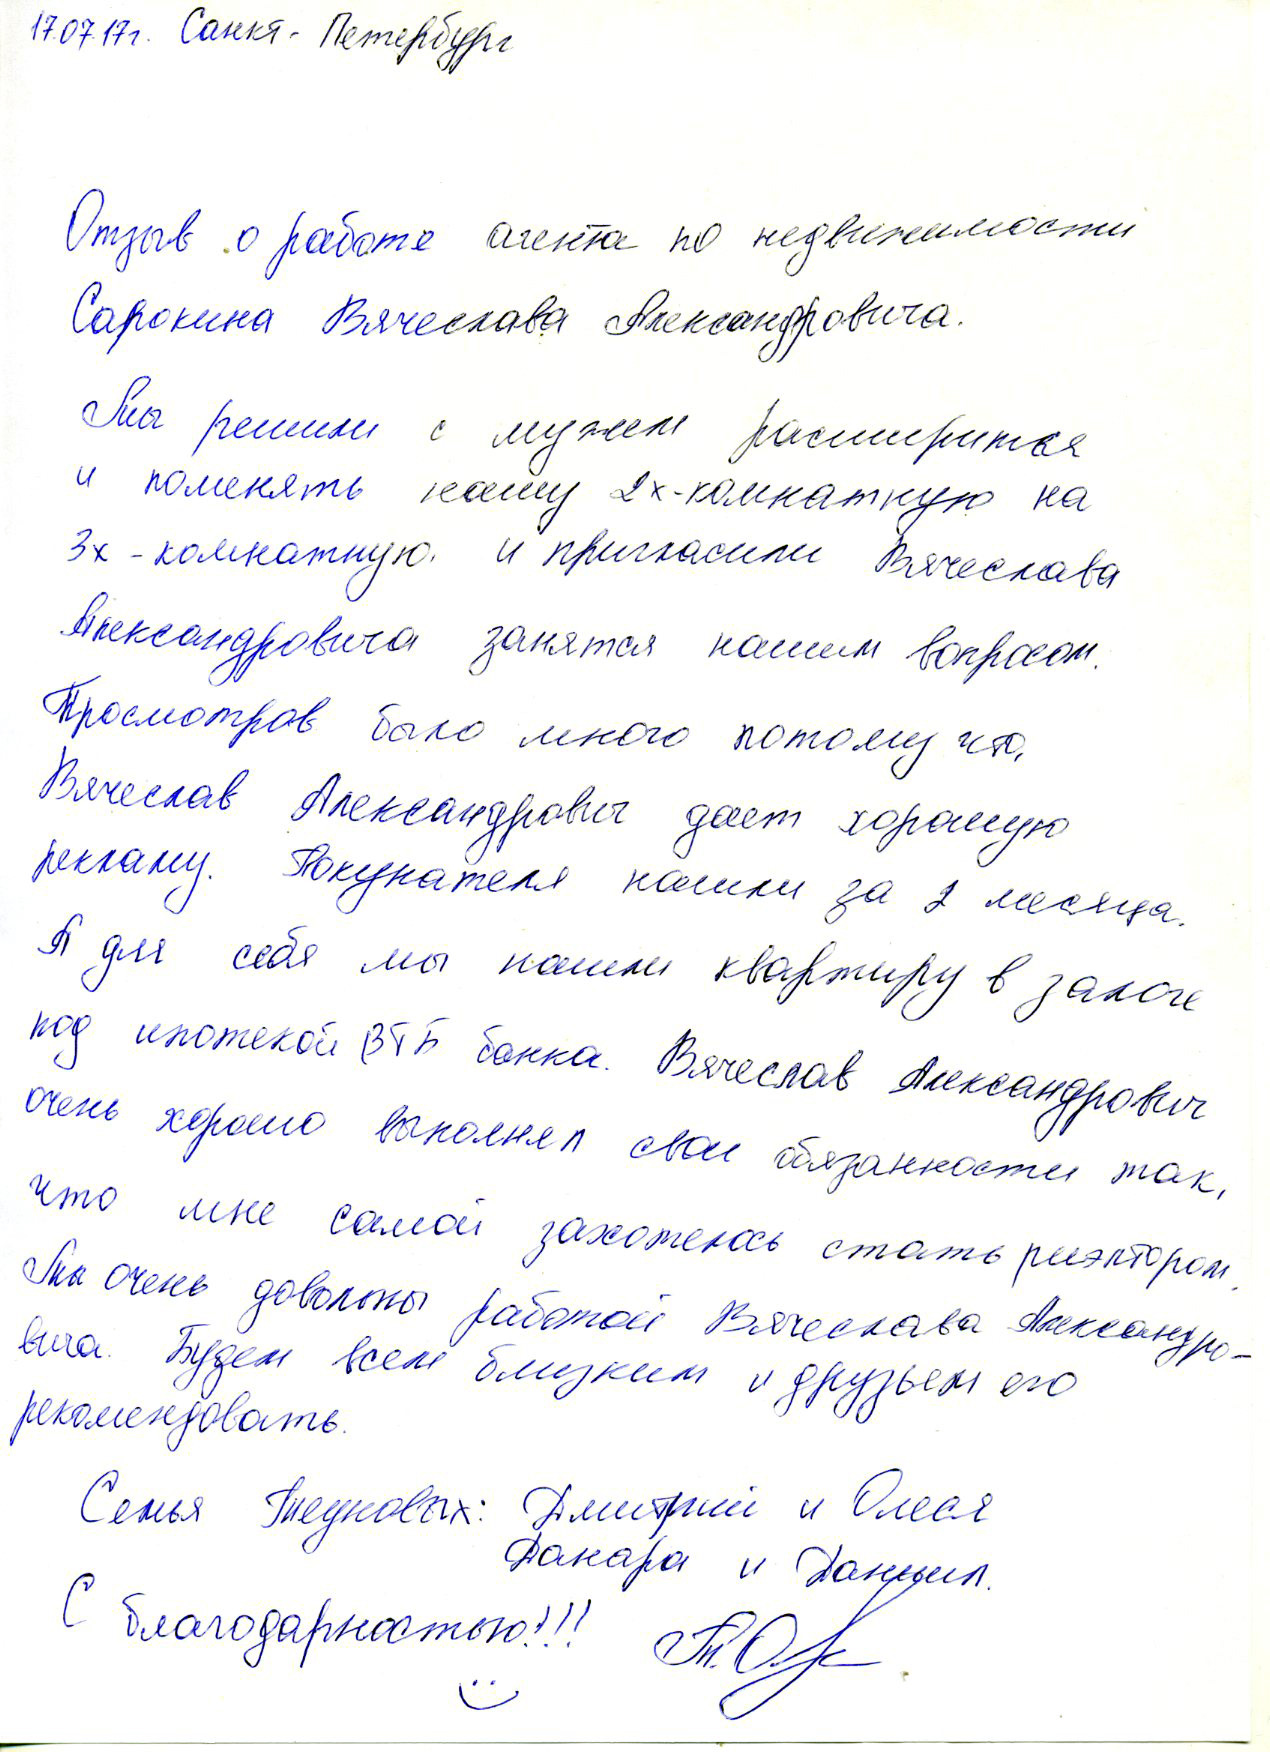 17.07.17г. Санкт-Петербург
Отзыв о работе агента по недвижимости
Сарокина Вячеслава Александровича.
Мы решили с мужем расширится
и поменять нашу 2х-комнатную на
3х-комнатную. и пригласили Вячеслава
Александровича занятся нашим вопросом.
Просмотров было много потому что,
Вячеслав Александрович дает хорошую
рекламу. Покупателя нашли за 2 месяца.
А для себя мы нашли квартиру в залоге
под ипотекой ВТБ банка. Вячеслав Александрович
очень хорошо выполнял свои обязанности так,
что мне самой захотелось стать риэлтором.
Мы очень довольны работой Вячеслава Александро-
вича. Будем всем близким и друзьям его
рекомендовать.
Семья : Дмитрий и Олеся
Данара и Даниил.
С благодарностью!!!